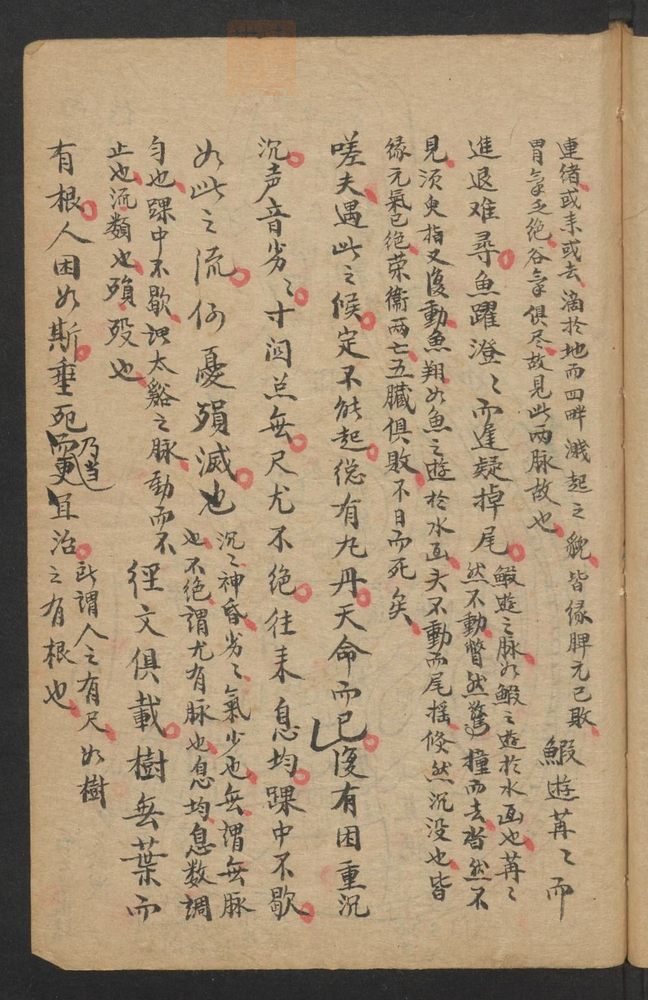 連绪或来或去滴於地而四畔溅起之貌皆缘脾元已败
胃氣乏绝谷氣俱尽故見此两脉故也
鰕遊苒〻而
進退难尋魚躍澄〻而遲疑掉尾
鰕遊之脉如鰕之遊於水面也苒〻
然不動瞥然驚撞而去沓然不
見須臾指又復動魚翔如魚之遊於水面头不動而尾摇倏然沉没也皆
缘元氣已绝荣衛两亡五臟俱败不日而死矣
嗟夫遇此之候定不能起縂有九丹天命而已復有困重沉
沉声音劣〻寸関总無尺尤不绝往来息均踝中不歇
如此之流何憂殞滅也
沉〻神昏劣〻氣少也無謂無脉
也不绝謂尤有脉也息均息数調
匀也踝中不歇太谿之脉動而不
止也流類也殞殁也
徑文俱載樹無葉而
有根人困如斯垂死而更且治
乃当
所謂人之有尺如樹
之有根也